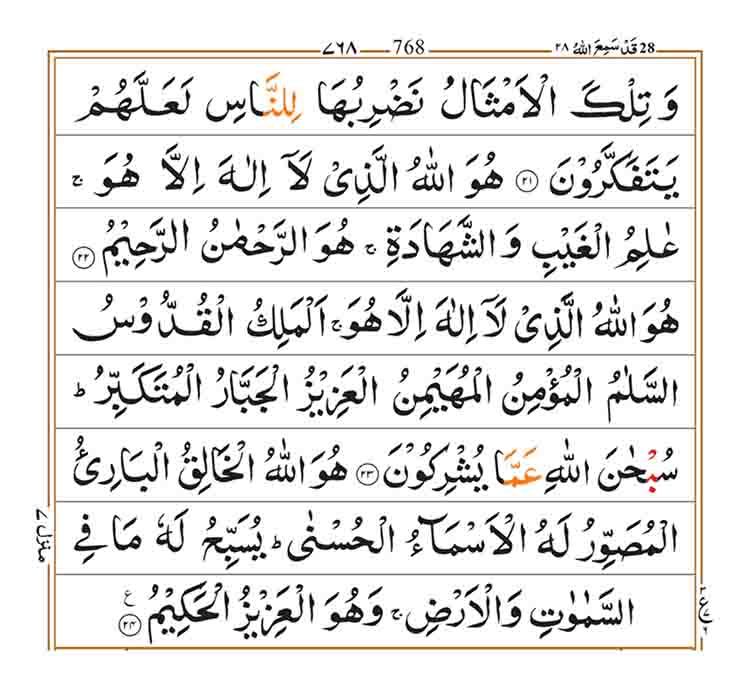 28 قَدْ سَمِعَ اللّٰهُ ٢٨ 768 ٧٦٨
وَ تِلْكَ الْاَمْثَالُ نَضْرِبُهَا لِلنَّاسِ لَعَلَّهُمْ
يَتَفَكَّرُوْنَ ۝٢١ هُوَ اللّٰهُ الَّذِىْ لَاۤ اِلٰهَ اِلَّا هُوَ ۚ
عٰلِمُ الْغَيْبِ وَالشَّهَادَةِ ۚ هُوَ الرَّحْمٰنُ الرَّحِيْمُ ۝٢٢
هُوَ اللّٰهُ الَّذِىْ لَاۤ اِلٰهَ اِلَّا هُوَ ۚ اَلْمَلِكُ الْقُدُّوْسُ
السَّلٰمُ الْمُؤْمِنُ الْمُهَيْمِنُ الْعَزِيْزُ الْجَبَّارُ الْمُتَكَبِّرُ ؕ
سُبْحٰنَ اللّٰهِ عَمَّا يُشْرِكُوْنَ ۝٢٣ هُوَ اللّٰهُ الْخَالِقُ الْبَارِئُ
الْمُصَوِّرُ لَهُ الْاَسْمَآءُ الْحُسْنٰى ؕ يُسَبِّحُ لَهٗ مَا فِى
السَّمٰوٰتِ وَالْاَرْضِ ۚ وَهُوَ الْعَزِيْزُ الْحَكِيْمُ ۝٢٤ ع
منزل ٧